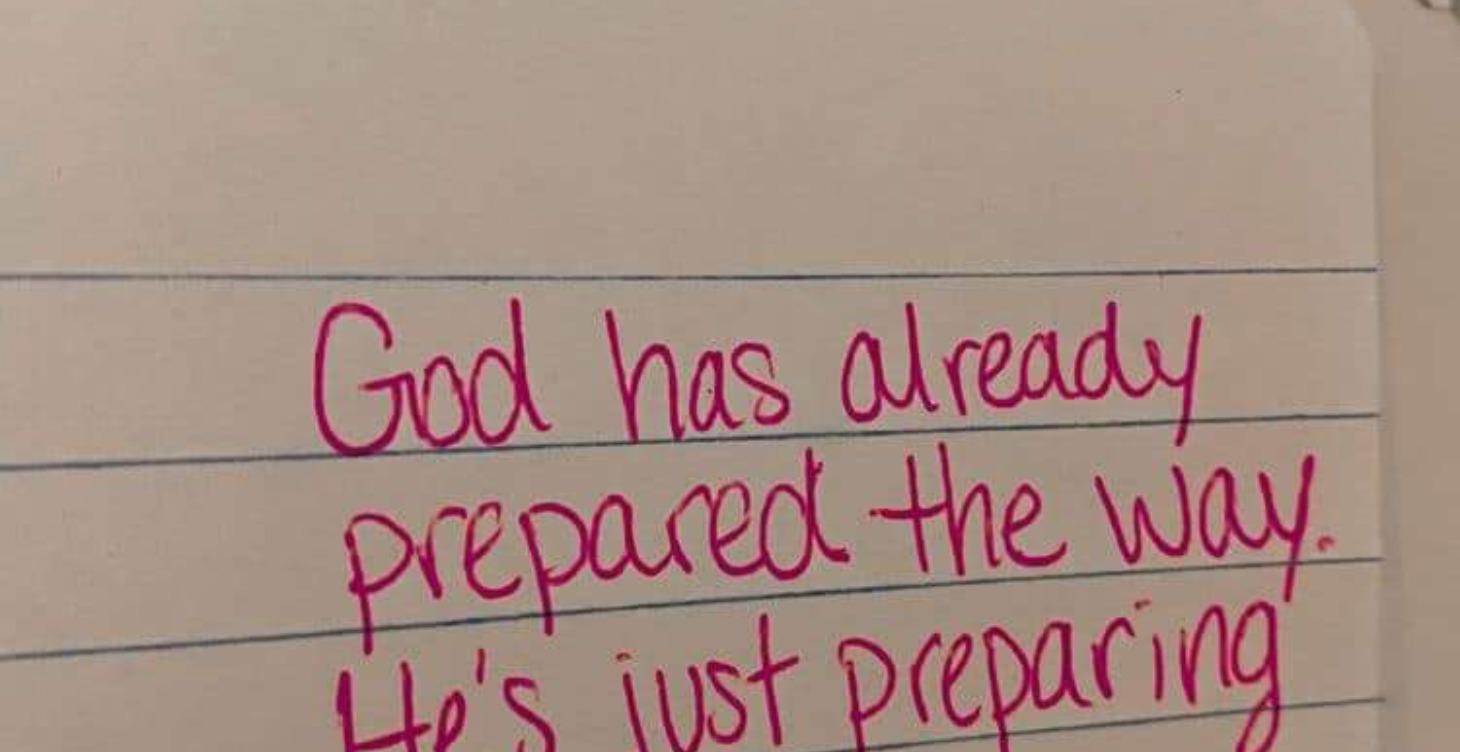 God has already
prepared the way.
He's just preparing